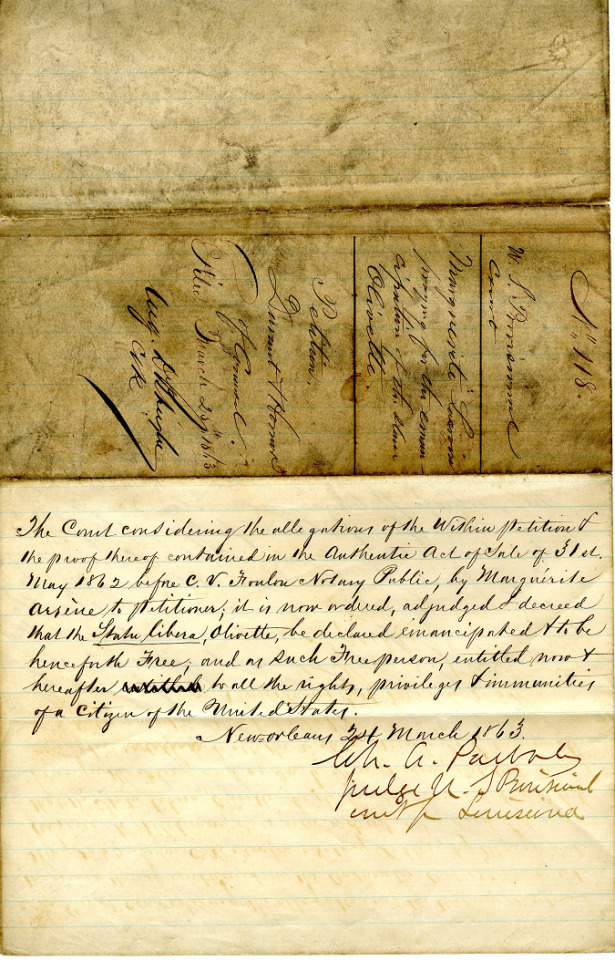 No 118.
U. S. Provisional
Court
Marguerite
praying for the eman-
cipation of the slave
Olivette.
Petition.
Durant & Hornor
of Counsel.
Filed March 23d 1863
Aug.
Clk
The Court considering the allegations of the Within petition &
the proof thereof contained in the Authentic Act of Sale of 31st.
May 1862 before C. V. Foulon Notary Public, by Marguérite
Arsène to petitioner; it is now ordered, adjudged & decreed
that the Statu libera, Olivette, be declared emancipated & to be
henceforth Free; and as such Free person, entitled now &
hereafter entitled to all the rights, privileges & immunities
of a Citizen of the United States.
New-orleans 24 March 1863.
Ch. A. Peabody
Judge U. S Provisional
Court for Louisiana